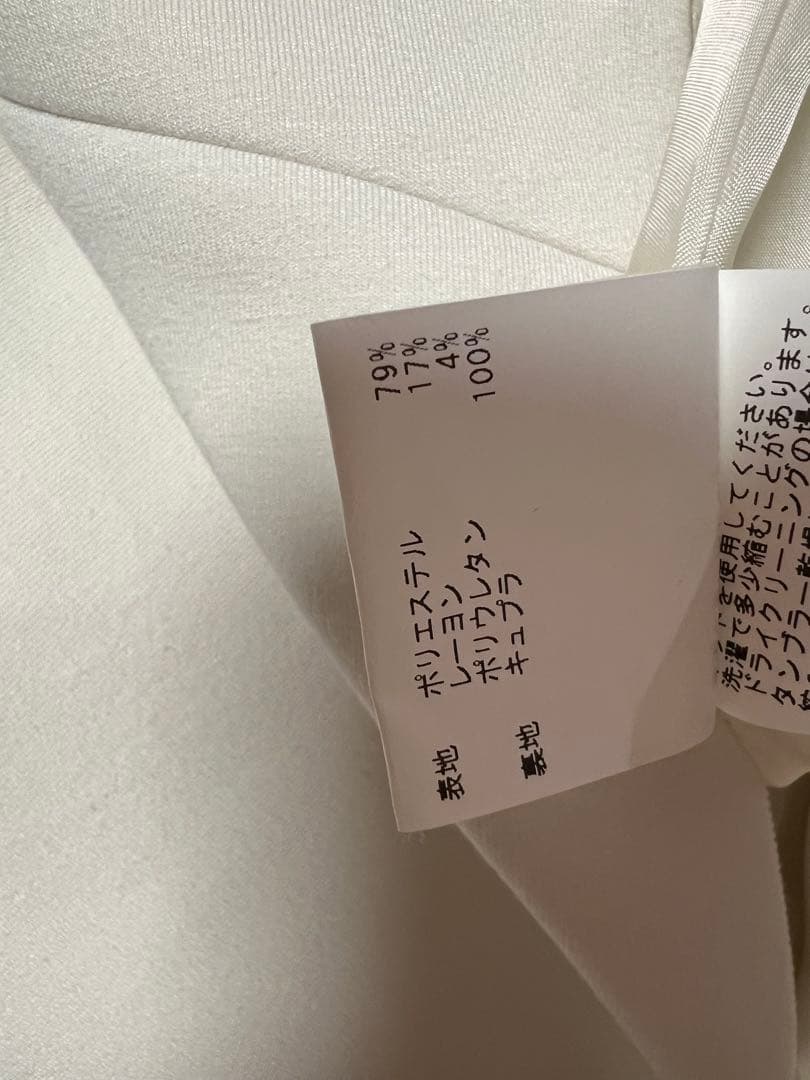 表地 ポリエステル 79%
レーヨン 17%
ポリウレタン 4%
裏地 キュプラ 100%
を使用してください。
洗濯で多少縮むことがあります。
ドライクリーニングの場合
タンブラー乾燥